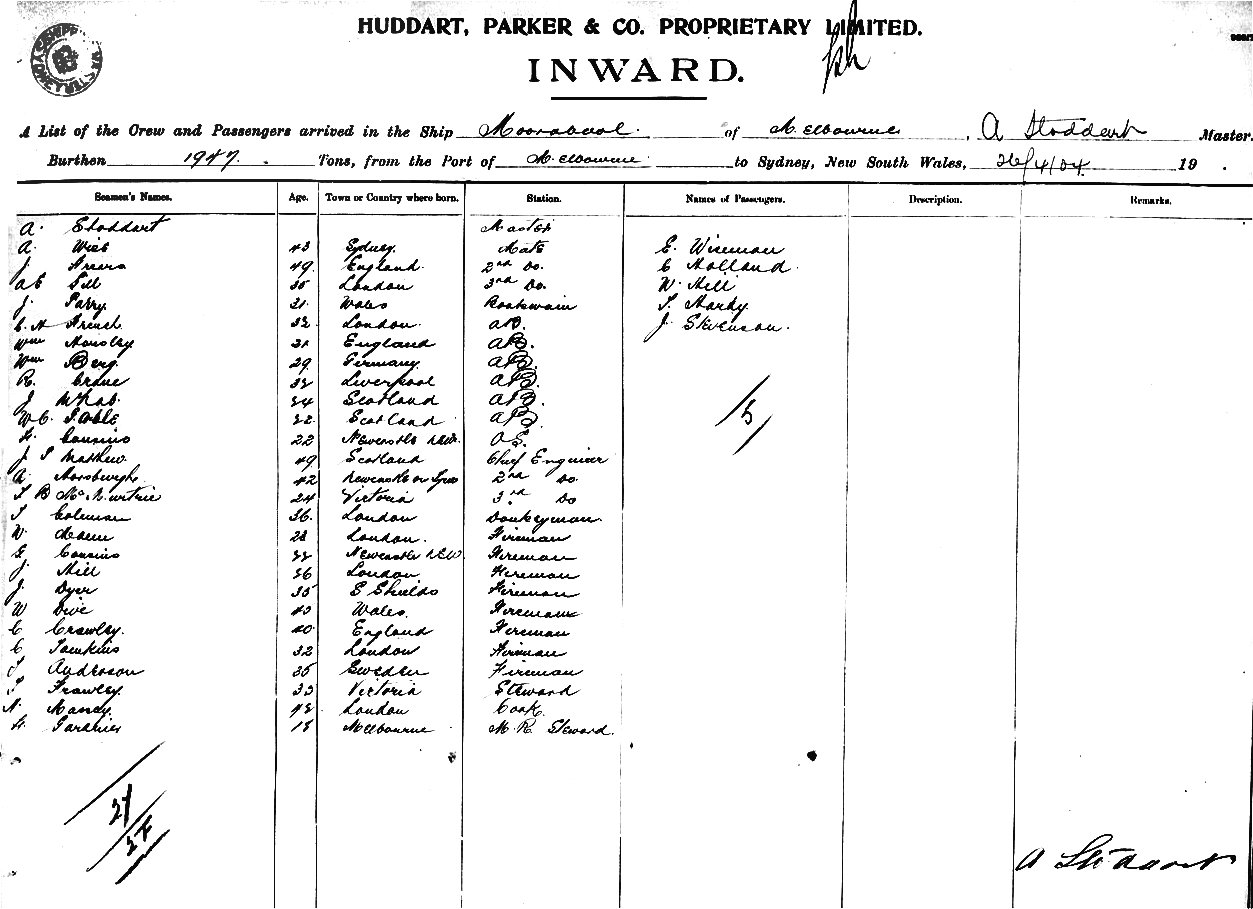 HUDDART, PARKER & CO. PROPRIETARY LIMITED.
INWARD.
A List of the Crew and Passengers arrived in the Ship Moorabool. of Melbourne, A Stoddart Master.
Burthen 1947. Tons, from the Port of Melbourne to Sydney, New South Wales, 26/4/04 19 .
Seamen's Names. Age. Town or Country where born. Station. Names of Passengers. Description. Remarks.
A. Stoddart Master
A. 43 Sydney. Mate E. Wiseman
J. 49 England. 2nd Do. C Holland.
35 London 3rd Do. W. Hill
J. Parry 31 Wales Boatswain T. Hardy
C. H French 32 London. AB. J. Stevenson.
Wm Horsley 31 England AB.
Wm Berg. 29 Germany. AB.
R. Crane 32 Liverpool AB.
J 34 Scotland AB.
W. C. 32 Scotland AB.
H. Cousins 22 Newcastle NSW. OS.
J S Mathew 49 Scotland Chief Engineer
A. Horsburgh 42 Newcastle on Tyne 2nd Do
T B McMurtrie 24 Victoria 3rd Do
T Coleman 36. London Donkeyman.
W. 28 London. Fireman
G. Cousins 32 Newcastle NSW Fireman
J. Hill 36 London Fireman
J. Dyer 35 S Shields Fireman
W Dive 43 Wales. Fireman
C Crawley. 40 England Fireman
C Tomkins 32 London Fireman
T Anderson 35 Sweden Fireman
T Frawley. 33 Victoria Steward
N. Massey. 48 London Cook.
H. Gardiner 18 Melbourne M. R. Steward.
/5
27
27
A Stoddart